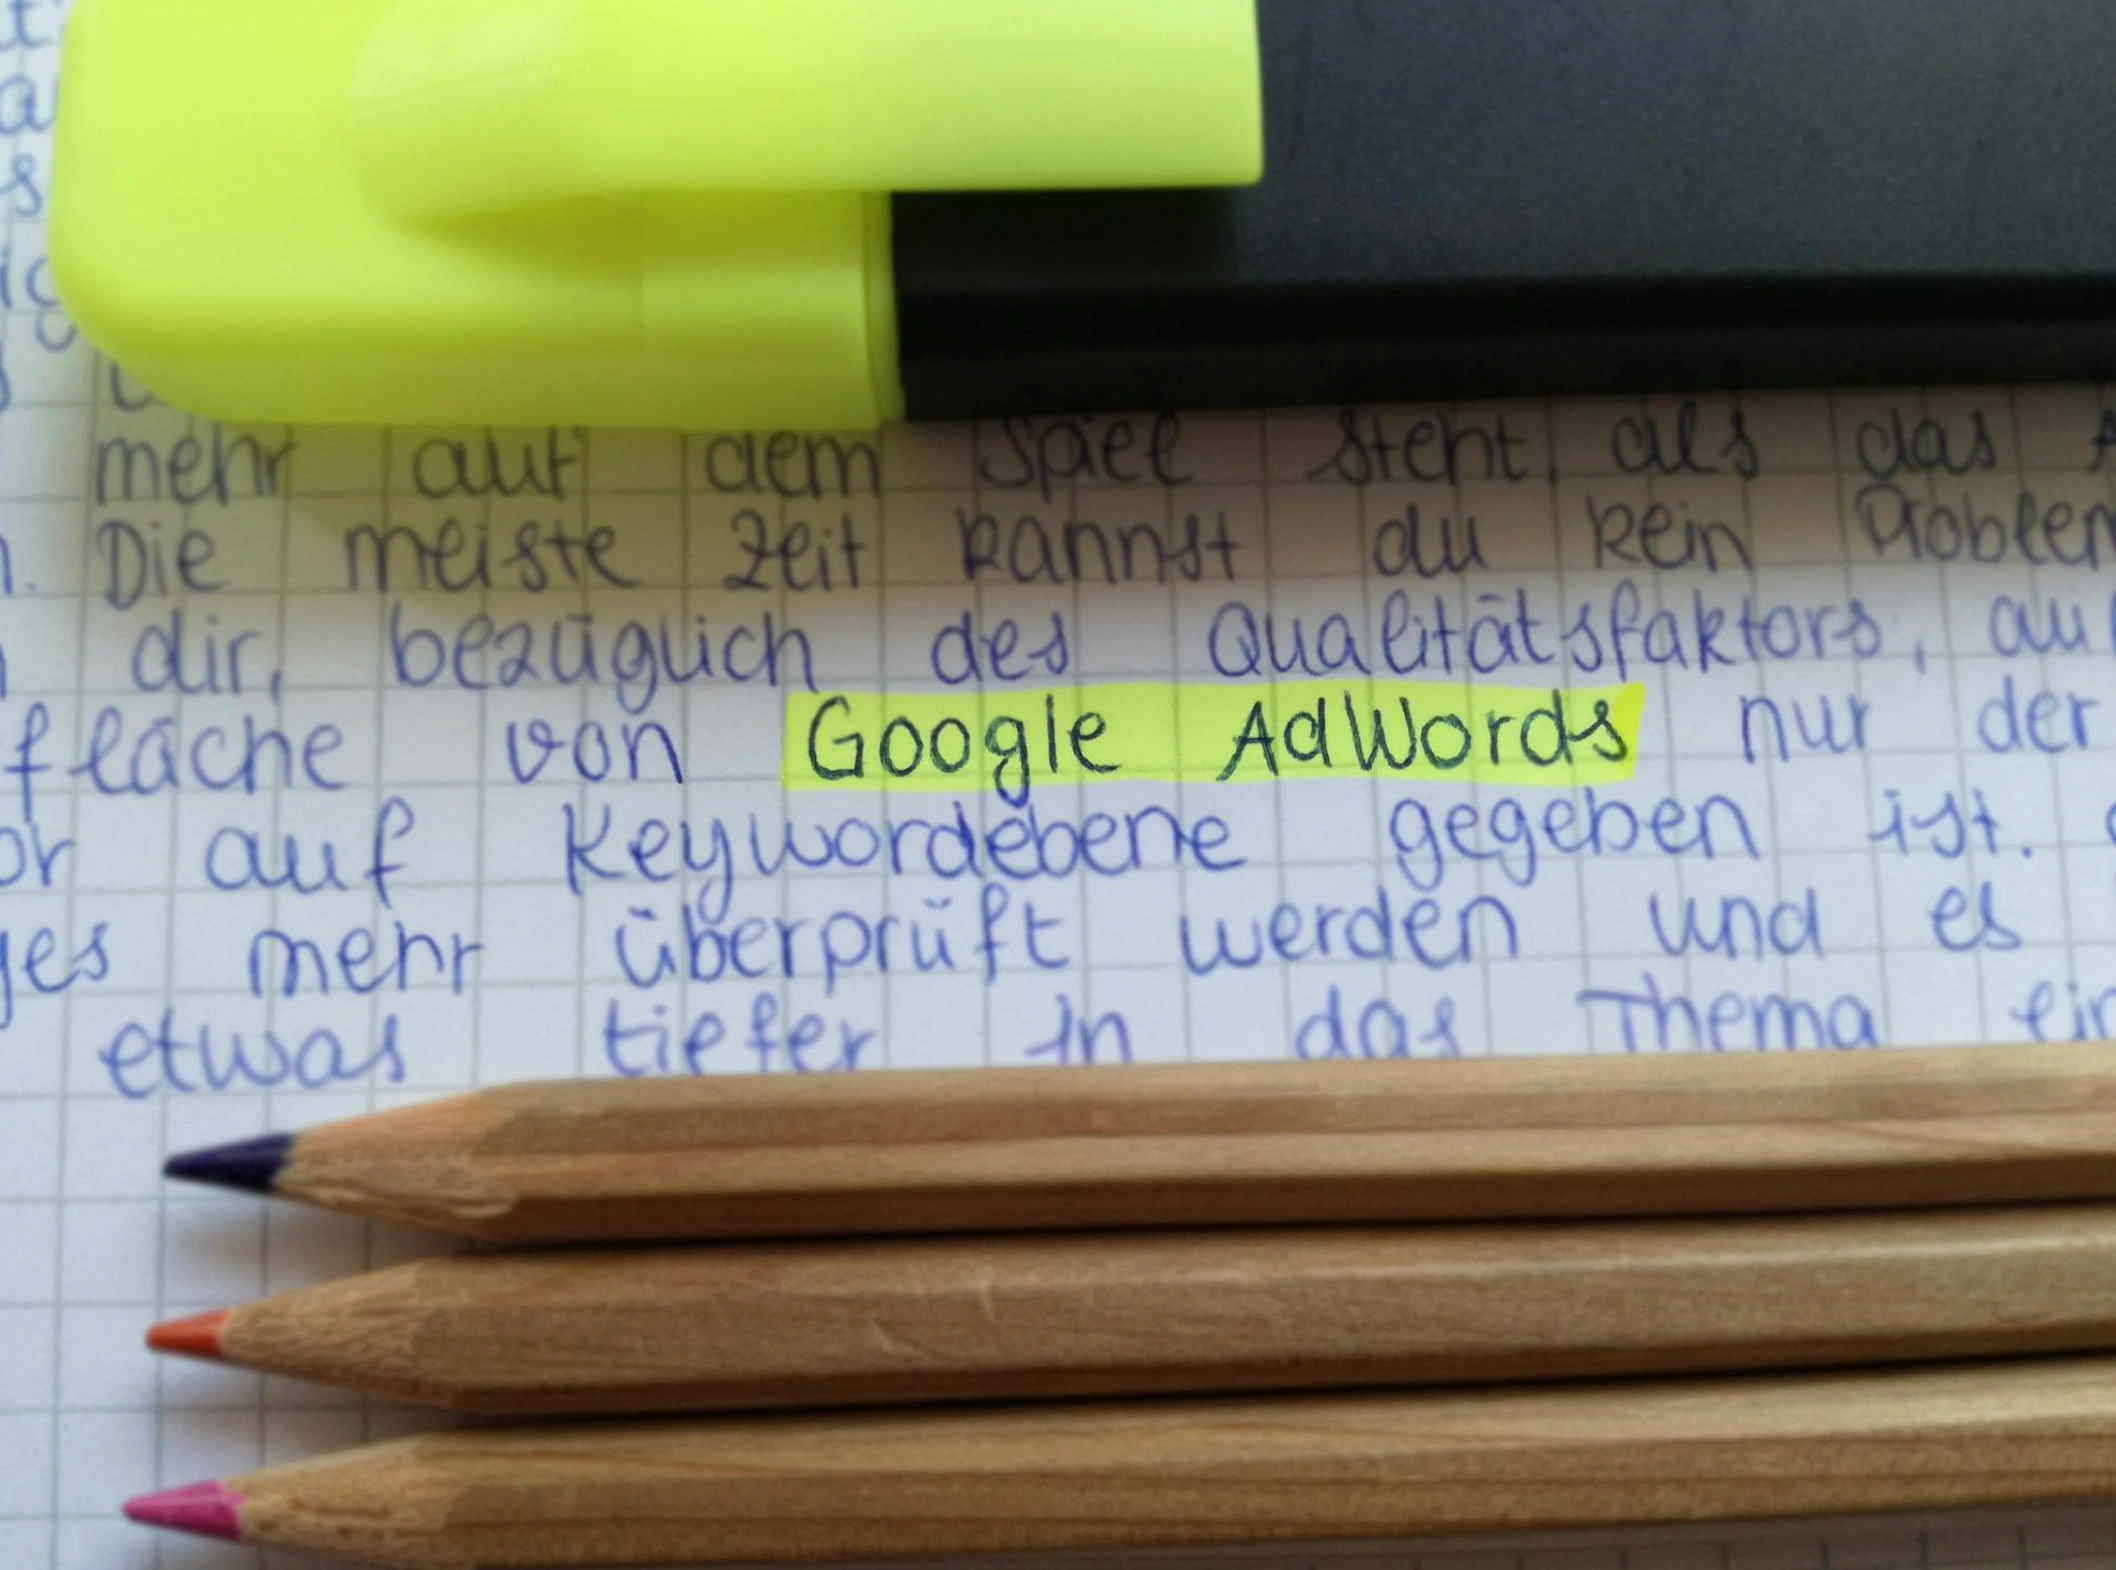 mehr auf dem Spiel steht, als das
Die meiste Zeit kannst du kein Problem
dir, bezüglich des Qualitätsfaktors, auf
fläche von Google AdWords nur der
auf Keywordebene gegeben ist.
mehr überprüft werden und es
etwas tiefer in das Thema